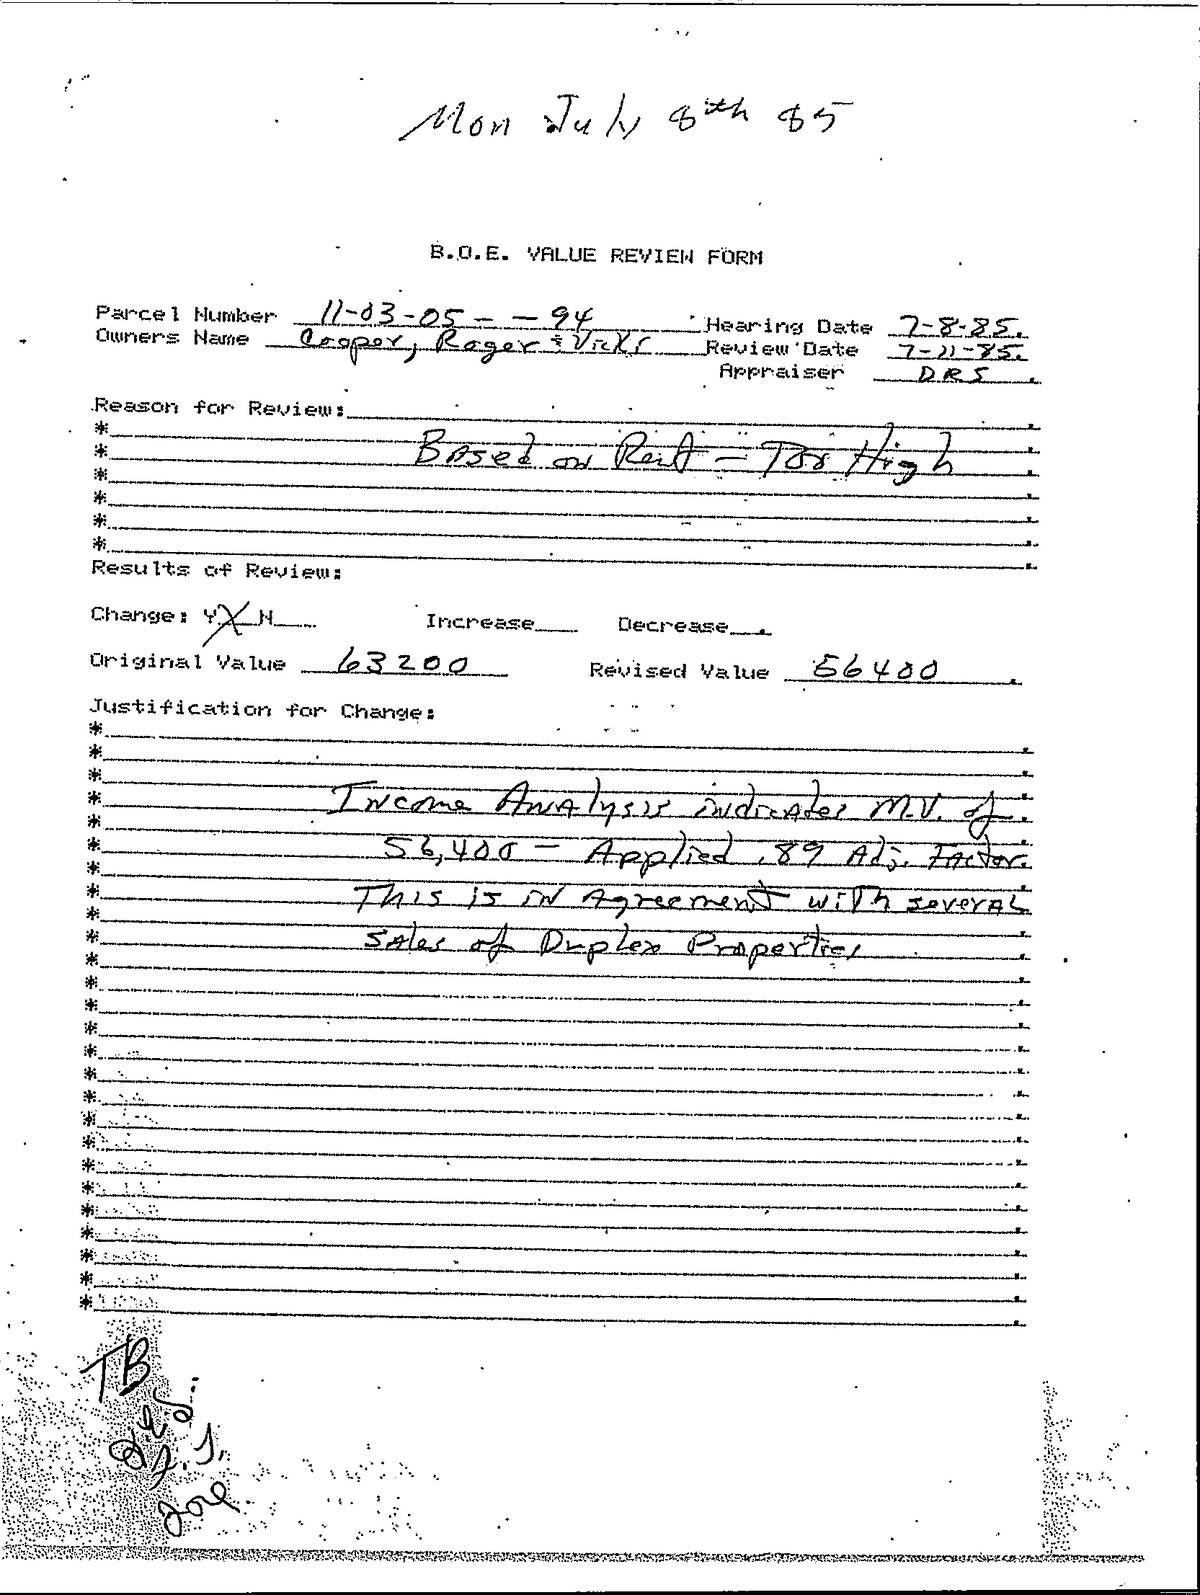 Mon July 8th 85
B.O.E. VALUE REVIEW FORM
Parcel Number 11-03-05- - 94 Hearing Date 7-8-85.
Owners Name Cooper, Roger & Vicki Review Date 7-11-85.
Appraiser DRS.
Reason for Review:
* Based on Rent - Too High
Results of Review:
Change: Y X N Increase Decrease.
Original Value 63200 Revised Value 56400.
Justification for Change:
* Income Analysis indicates M.V. of
* 56,400 - Applied .89 Adj. Factor.
* This is in Agreement with several
* sales of Duplex Properties
TB